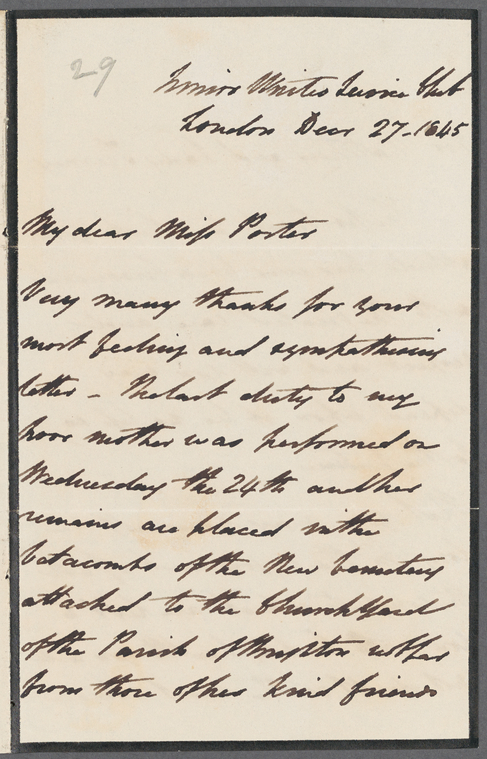 29
Junior United Service Club
London Decr 27-1845
My dear Miss Porter
Very many thanks for your
most feeling and sympathising
letter - The last duty to my
poor mother was performed on
Wednesday the 24th and her
remains are placed in the
Catacombs of the New Cemetery
attached to the Church Yard
of the Parish of Brighton not far
from those of her kind friends